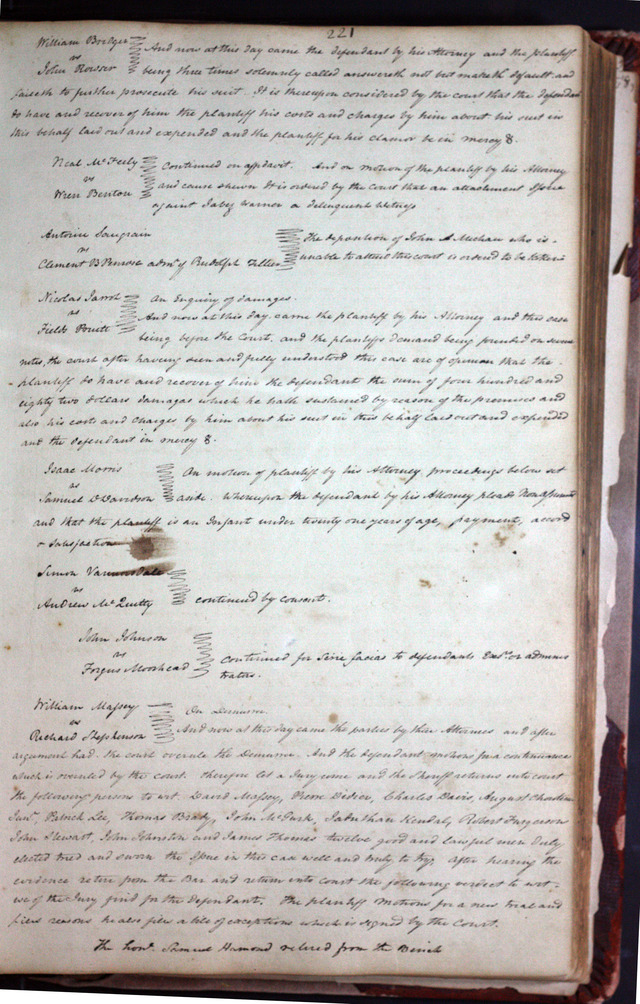 221
William Bridger
vs
John Rosser
And now at this day came the defendant by his Attorney and the plantiff
being three times solemnly called answereth not but maketh default and
faileth to further prosecute his suit. It is thereupon considered by the court that the defendant
do have and recover of him the plantiff his costs and charges by him about his suit in
this behalf laid out and expended and the plantiff for his clamor be in mercy &.
Neal McFeely
vs
Wren Benton
Continued on affidavit. And on motion of the plantiff by his Attorney
and cause shewn It is ordered by the Court that an attachment Issue
against Jabez Warner a delinquent Witness
Antoine Saugrain
vs
Clement B Penrose admr of Rudolph Tillier
The deposition of John A Michau who is
unable to attend the court is ordered to be taken
Nicolas Jarrot
vs
Fields Pruitt
An Enquiry of damages.
And now at this day came the plantiff by his Attorney and this case
being before the Court, and the plantiffs demand being founded on
notes, the court after having seen and fully understood this case are of opinion that the
plantiff do have and recover of him the defendant the sum of four hundred and
eighty two dollars damages which he hath sustained by reason of the premises and
also his costs and charges by him about his suit in this behalf laid out and expended
and the defendant in mercy &.
Isaac Morris
vs
Samuel D Davidson
On motion of plantiff by his Attorney proceedings below set
aside. Whereupon the defendant by his Attorney pleads Nonassumsit
and that the plantiff is an Infant under twenty one years of age, payment, accord
& satisfaction
Simon Vanorsdale
vs
Andrew McQuitty
continued by consent.
John Johnson
vs
Fergus Moorhead
Continued for Scire facias to defendants Exrs. or adminis
trators.
William Massey
vs
Richard Stephenson
On Demurrer.
And now at this day came the parties by their Attornies and after
argument had the court overule the Demurrer. And the defendant motions for a continuance
which is overuled by the court. therefore let a Jury come and the Sheriff returns into court
the following persons to wit David Massey, Pierre Didier, Charles Davis, August Chouteau
Junr, Patrick Lee, Thomas Brady, John McGurk, Jaduthan Kendal, Robert Furgerson
John Stewart, John Johnston and James Thomas twelve good and lawful men Duly
elected tried and sworn the Issue in this case well and truly to try, After hearing the
evidence retire from the Bar and return into court the following verdict to wit -
we of the Jury find for the defendant. The plantiff motions for a new trial and
files reasons he also files a bill of exceptions which is signed by the Court.
The honl. Samuel Hamond retired from the Bench